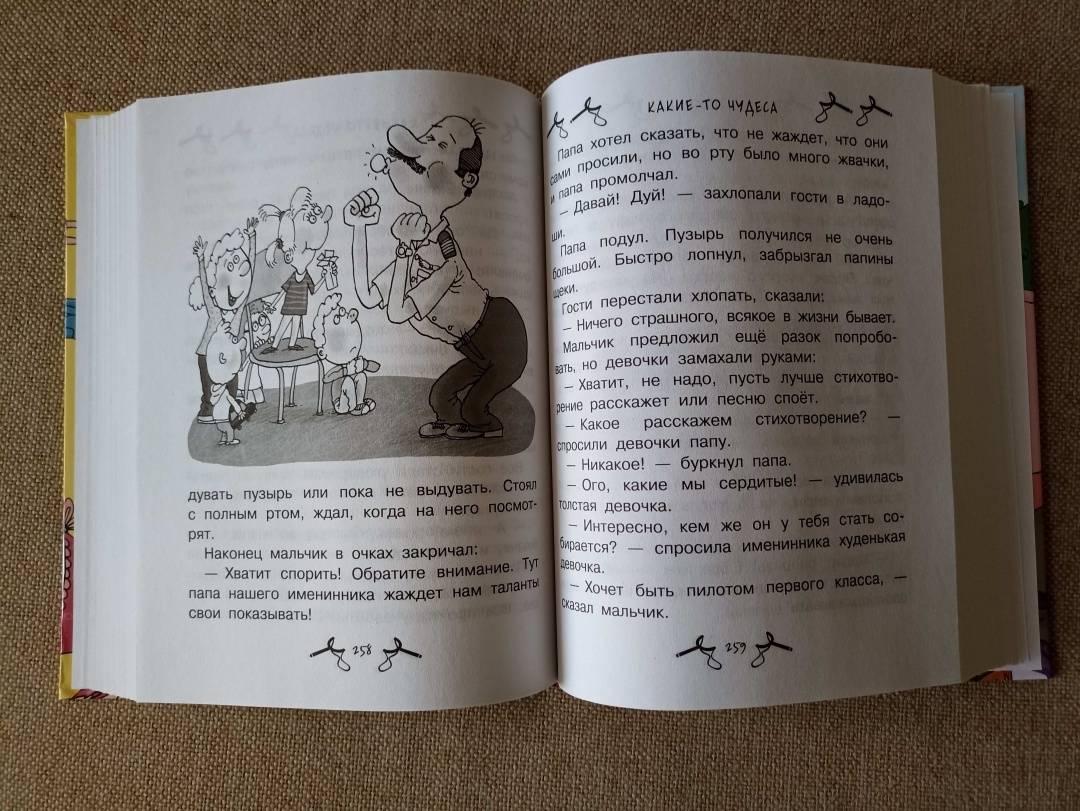 дувать пузырь или пока не выдувать. Стоял
с полным ртом, ждал, когда на него посмот-
рят.
Наконец мальчик в очках закричал:
— Хватит спорить! Обратите внимание. Тут
папа нашего именинника жаждет нам таланты
свои показывать!
258
КАКИЕ-ТО ЧУДЕСА
Папа хотел сказать, что не жаждет, что они
сами просили, но во рту было много жвачки,
и папа промолчал.
— Давай! Дуй! — захлопали гости в ладо-
ши.
Папа подул. Пузырь получился не очень
большой. Быстро лопнул, забрызгал папины
щеки.
Гости перестали хлопать, сказали:
— Ничего страшного, всякое в жизни бывает.
Мальчик предложил ещё разок попробо-
вать, но девочки замахали руками:
— Хватит, не надо, пусть лучше стихотво-
рение расскажет или песню споёт.
— Какое расскажем стихотворение? —
спросили девочки папу.
— Никакое! — буркнул папа.
— Ого, какие мы сердитые! — удивилась
толстая девочка.
— Интересно, кем же он у тебя стать со-
бирается? — спросила именинника худенькая
девочка.
— Хочет быть пилотом первого класса, —
сказал мальчик.
259